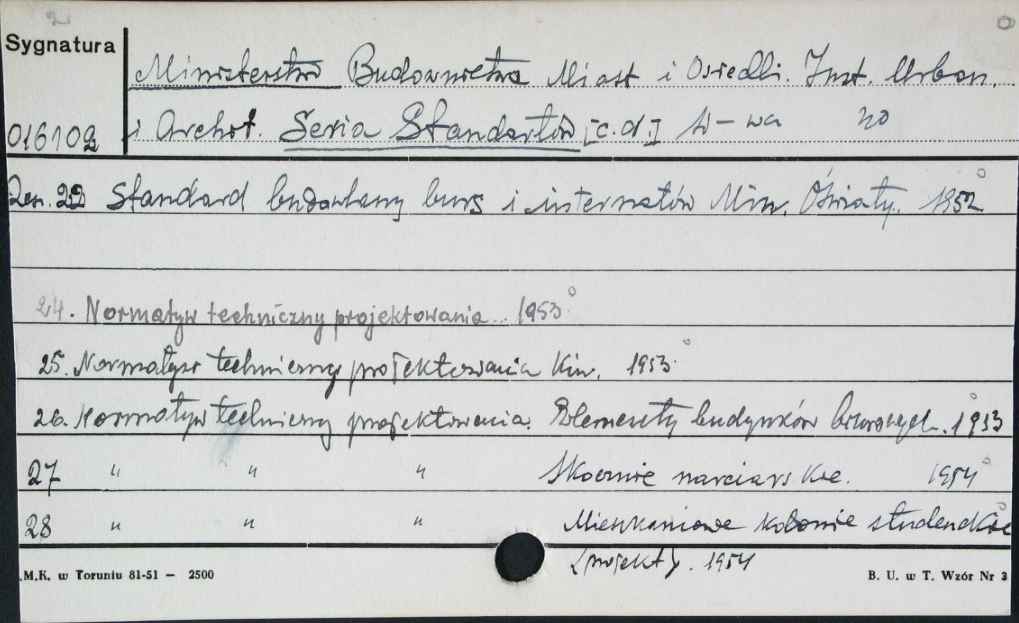 Sygnatura
Ministerstwo Budownictwa Miast i Osiedli. Inst. Urban.
016102 i Archit. Seria Standartów [c.d.] W-wa 20
Standard budowlany burs i internatów Min. Oświaty. 1952
24. Normatyw techniczny projektowania. 1953
25. Normatyw techniczny projektowania Kin. 1953
26. Normatyw techniczny projektowania. Elementy budynków biurowych. 1953
27 " " " Skocznie narciarskie. 1954
28 " " " Mieszkaniowe kolonie studenckie
(projekt). 1954
.M.K. w Toruniu 81-51 — 2500 B. U. w T. Wzór Nr 3